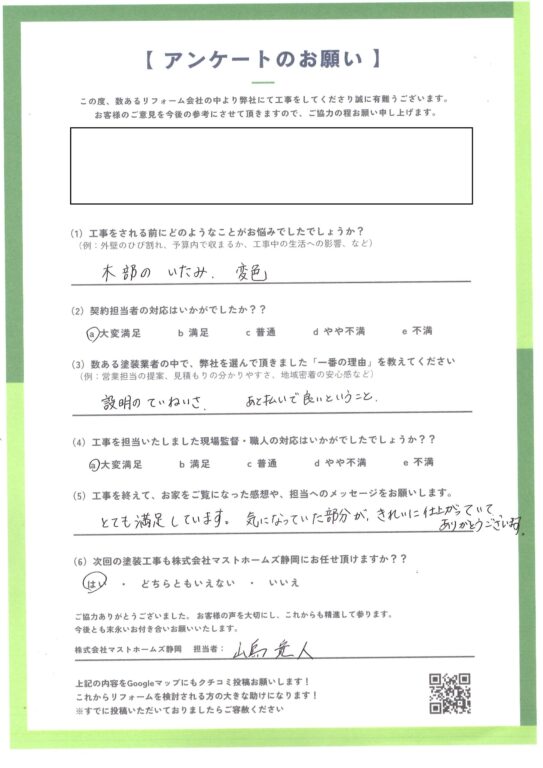 【 アンケートのお願い 】
この度、数あるリフォーム会社の中より弊社にて工事をしてくださり誠に有難うございます。
お客様のご意見を今後の参考にさせて頂きますので、ご協力の程お願い申し上げます。
(1) 工事をされる前にどのようなことがお悩みでしたでしょうか?
(例:外壁のひび割れ、予算内で収まるか、工事中の生活への影響、など)
木部の いたみ. 変色
(2) 契約担当者の対応はいかがでしたか??
a 大変満足 b 満足 c 普通 d やや不満 e 不満
(3) 数ある塗装業者の中で、弊社を選んで頂きました「一番の理由」を教えてください
(例:営業担当の提案、見積もりの分かりやすさ、地域密着の安心感など)
説明のていねいさ. あと払いで良いということ.
(4) 工事を担当いたしました現場監督・職人の対応はいかがでしたでしょうか??
a 大変満足 b 満足 c 普通 d やや不満 e 不満
(5) 工事を終えて、お家をご覧になった感想や、担当へのメッセージをお願いします。
とても満足しています。気になっていた部分が、きれいに仕上がっていて
ありがとうございます.
(6) 次回の塗装工事も株式会社マストホームズ静岡にお任せ頂けますか??
はい ・ どちらともいえない ・ いいえ
ご協力ありがとうございました。お客様の声を大切にし、これからも精進して参ります。
今後とも末永いお付き合いお願いいたします。
株式会社マストホームズ静岡 担当者:
上記の内容をGoogleマップにもクチコミ投稿お願いします!
これからリフォームを検討される方の大きな助けになります!
※すでに投稿いただいておりましたらご容赦ください